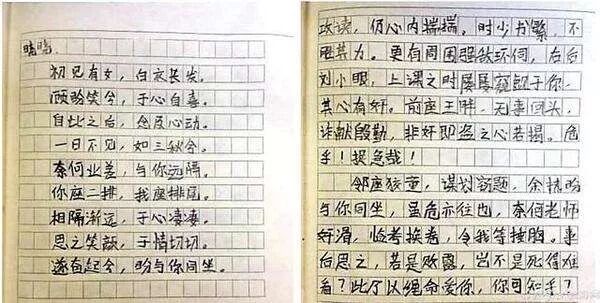 初见有女，白衣长发。
顾盼笑兮，于心自喜。
自此之后，念及心动。
一日不见，如三秋兮。
奈何业差，与你远隔。
你座二排，我座排尾。
相隔渐远，于心凄凄。
思之笑颜，于情切切。
遂奋起兮，盼与你同坐。
攻读，仍心内揣揣。时少书繁，不
胜其力。更有周围强敌环伺，右后
刘小眼，上课之时屡屡窥于你，
其心有奸。前座王胖，无事回头，
诈献殷勤，非奸即盗之心若揭。危
乎！极急哉！
邻座狡童，谋划窃题，余盼
与你同坐，虽危亦往也，奈何老师
奸滑，临考换卷，令我等捶胸。事
思之，若是败露，岂不是死得难
看？此乃以绳命爱你，你可知乎？